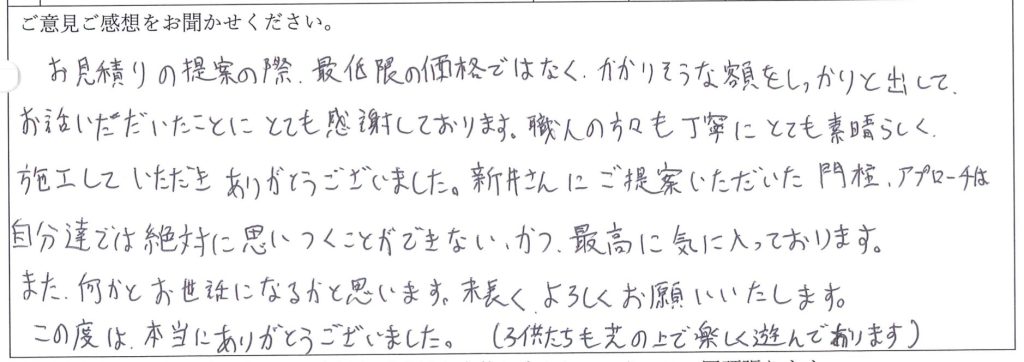 ご意見ご感想をお聞かせください。
お見積りの提案の際、最低限の価格ではなく、かかりそうな額をしっかりと出して、
お話いただいたことにとても感謝しております。職人の方々も丁寧にとても素晴らしく、
施工していただきありがとうございました。新井さんにご提案いただいた門柱、アプローチは
自分達では絶対に思いつくことができない、かつ、最高に気に入っております。
また、何かとお世話になるかと思います。末長く、よろしくお願いいたします。
この度は、本当にありがとうございました。（子供たちも芝の上で楽しく遊んでおります）